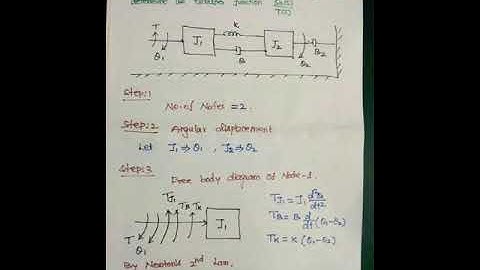 Determine the transfer function θ2(s)/T(s)
T θ1 J1 K B J2 θ2 B2
Step:1
No. of Nodes = 2.
Step:2 Angular displacement
Let J1 ⇒ θ1 , J2 ⇒ θ2
Step:3
Free body diagram of Node-1.
T θ1 TJ1 TB TK J1
TJ1 = J1 d²θ1/dt²
TB = B d/dt (θ1-θ2)
TK = K (θ1-θ2)
By Newton's 2nd Law,